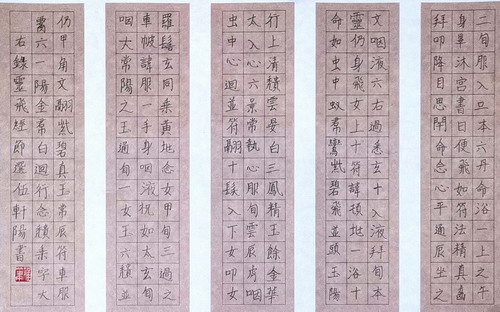 二旬服入立本六丹命浴一上之午
身畢沐宮書日便飛如符法精真高
拜叩降目思開命念心平通辰坐之
文咽液六右過玄十入液拜旬本
靈仍身飛女上十符諱頓地一浴十
命如虫中鸞紫碧飛並頭玉陽
行上清積晏白三鳳精玉餘金華
太入心六景雲常執心服旬雲辰咽
虫中心迴並符翮十髮入下女叩女
羅玄同乘黃地念女甲旬三過之
車帔諱服一手身咽液祝如太玄旬
咽大常陽之玉通旬一女玉六積並
仍甲角文翮紫碧真玉常辰符車服
六一陽金希白迴行念積字大
右錄靈飛經節選伍軒陽書